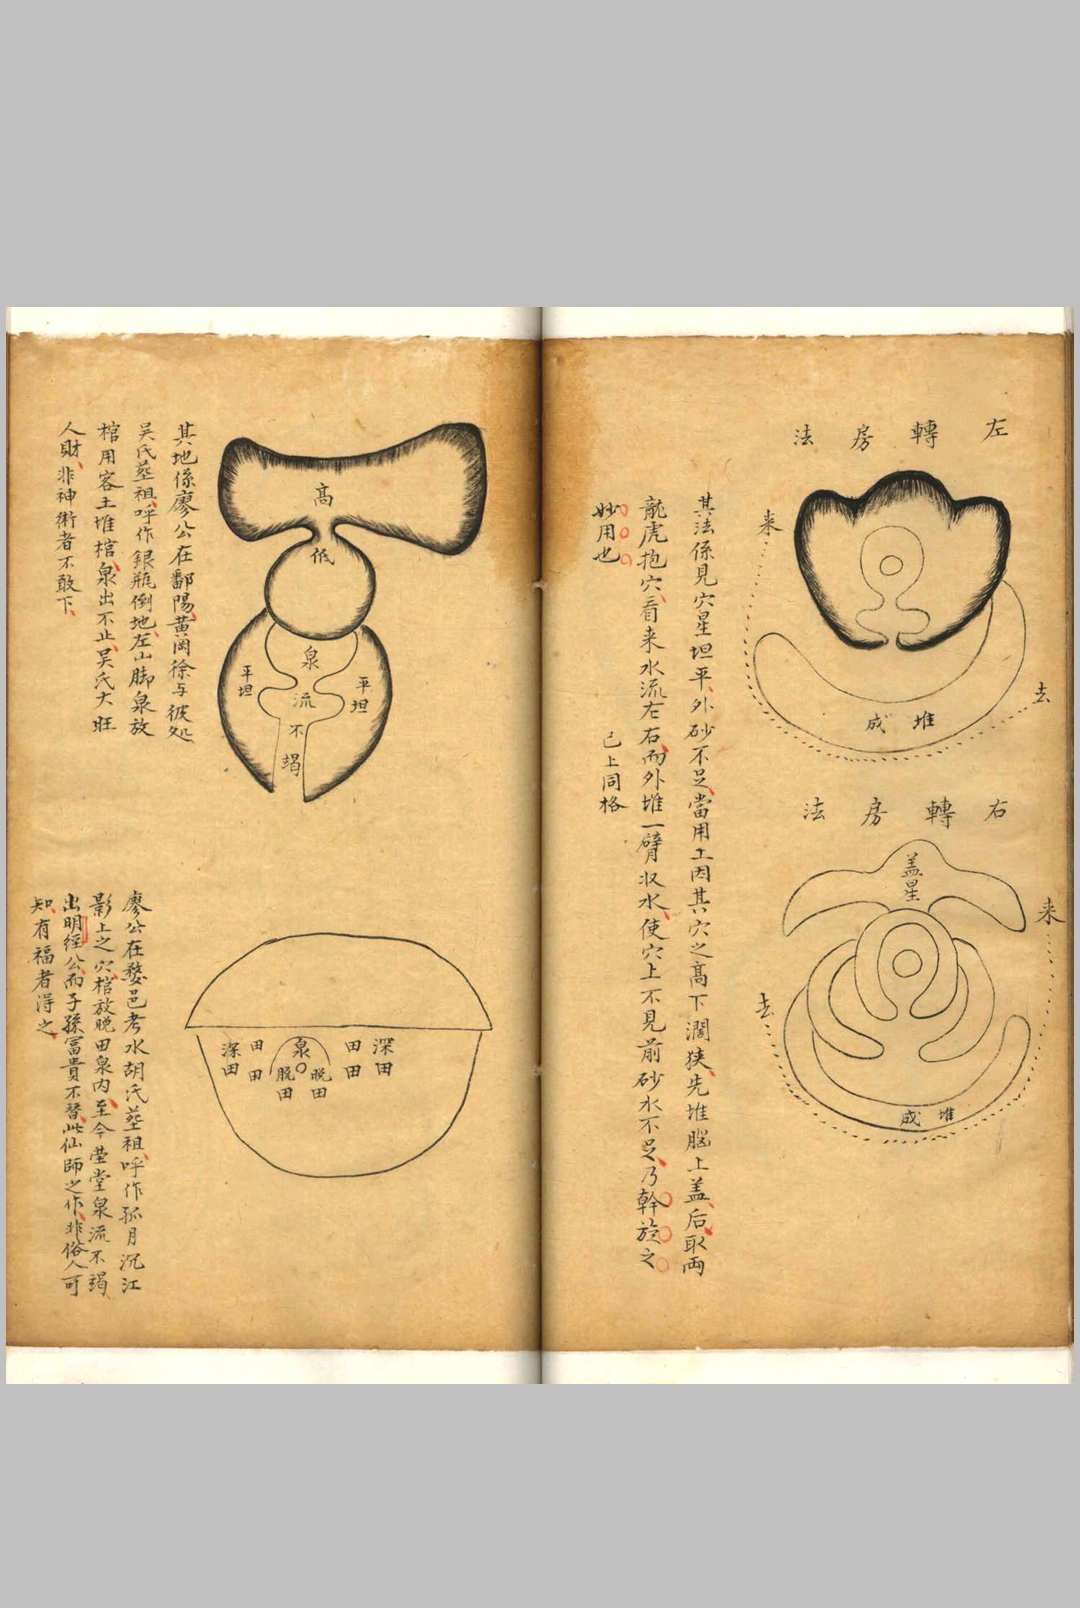 左轉房法
来
去
堆成
右轉房法
盖星
来
去
堆成
其法係見穴星坦平外砂不足當用土因其穴之高下濶狹先堆腦上盖后取両
龍虎抱穴看来水流左右而外堆一臂収水使穴上不見前砂水不足乃斡旋之
妙用也
已上同格
高
低
泉
流
不
竭
平坦
平坦
其地係廖公在鄱陽黄岡徐与彼処
吴氏塟祖呼作銀瓶倒地左山脚泉放
棺用客土堆棺泉出不止吴氏大旺
人財非神術者不敢下
深田
田田
脱田
泉
脱田
田田
深田
廖公在婺邑考水胡氏塟祖呼作孤月沉江
影上之穴棺放脱田泉内至今塋堂泉流不竭
出明經公而子孫富貴不替此仙師之作非俗人可
知有福者得之